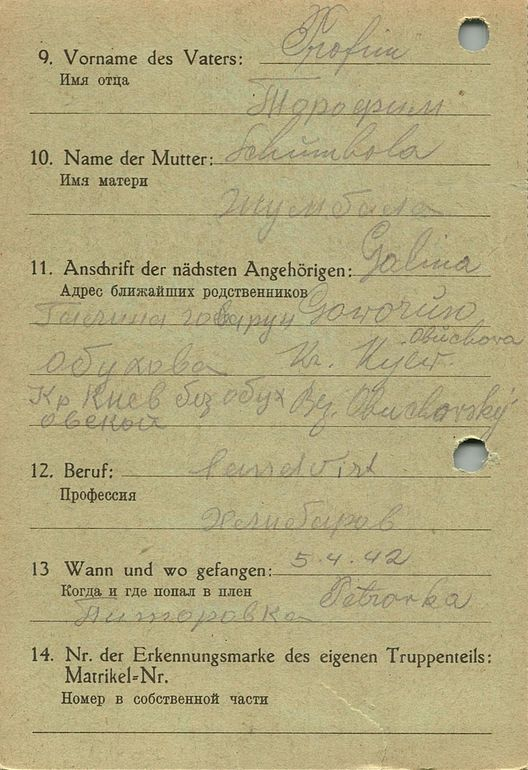 9. Vorname des Vaters: Trofim
Имя отца
Торофим
10. Name der Mutter: Schumbola
Имя матери
Шумбала
11. Anschrift der nächsten Angehörigen: Galina
Адрес ближайших родственников Goworun
Галина говарун
Obuchova
обухова Kr. Kijew.
Кр Киев обух Bz. Obuchovský
овской
12. Beruf: Landwirt
Профессия
13 Wann und wo gefangen: 5.4.42
Когда и где попал в плен Petrovka
Питоровка
14. Nr. der Erkennungsmarke des eigenen Truppenteils:
Matrikel-Nr.
Номер в собственной части